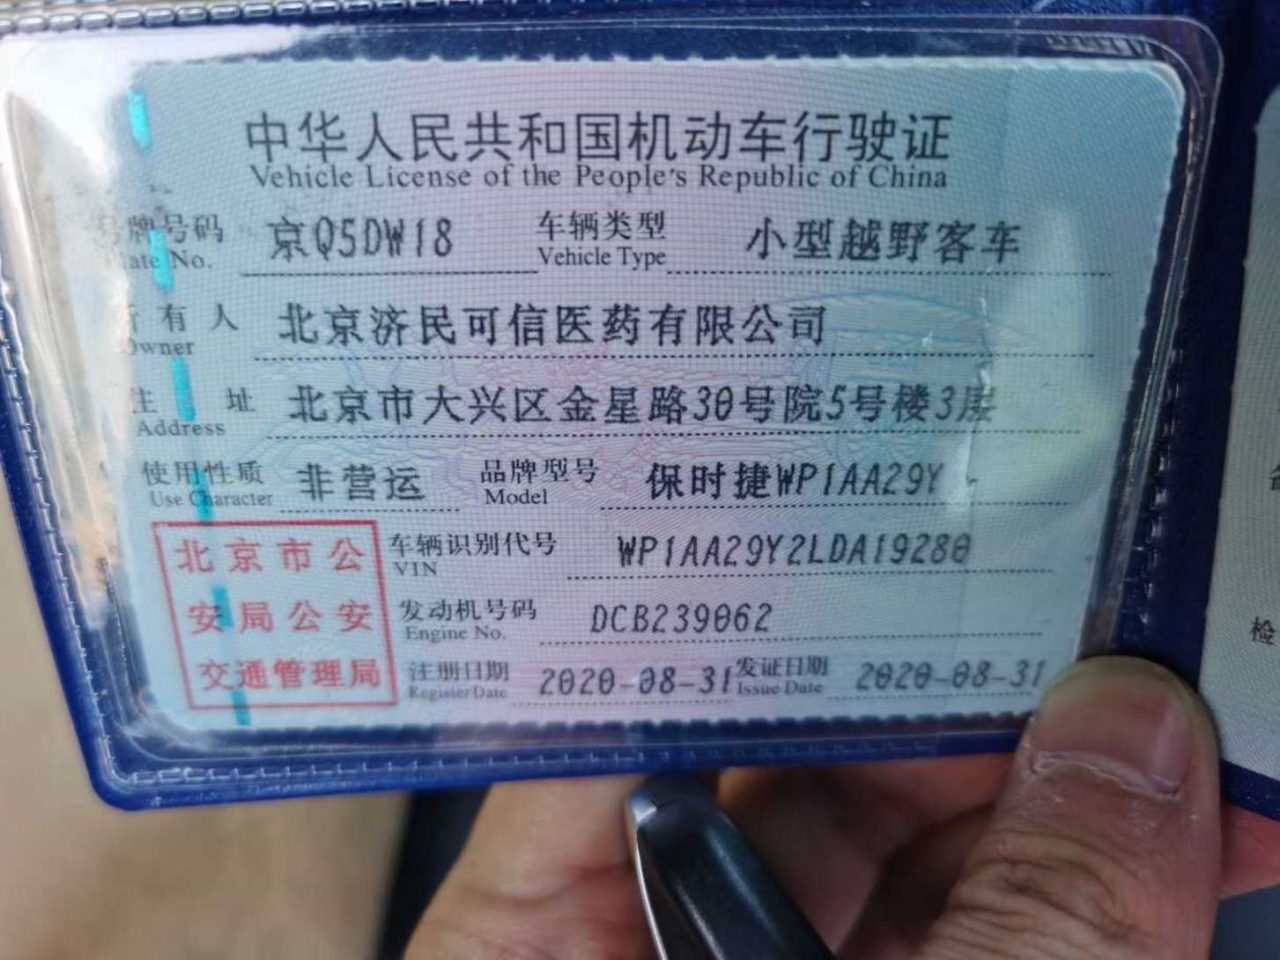 中华人民共和国机动车行驶证
Vehicle License of the People's Republic of China
号牌号码 京Q5DW18 车辆类型 小型越野客车
Plate No. Vehicle Type
所有人 北京济民可信医药有限公司
Owner
注 址 北京市大兴区金星路30号院5号楼3层
Address
使用性质 非营运 品牌型号 保时捷WP1AA29Y
Use Character Model
北京市公
安局公安
交通管理局
车辆识别代号 WP1AA29Y2LDA19280
VIN
发动机号码 DCB239062
Engine No.
注册日期 2020-08-31 发证日期 2020-08-31
Register Date Issue Date
检